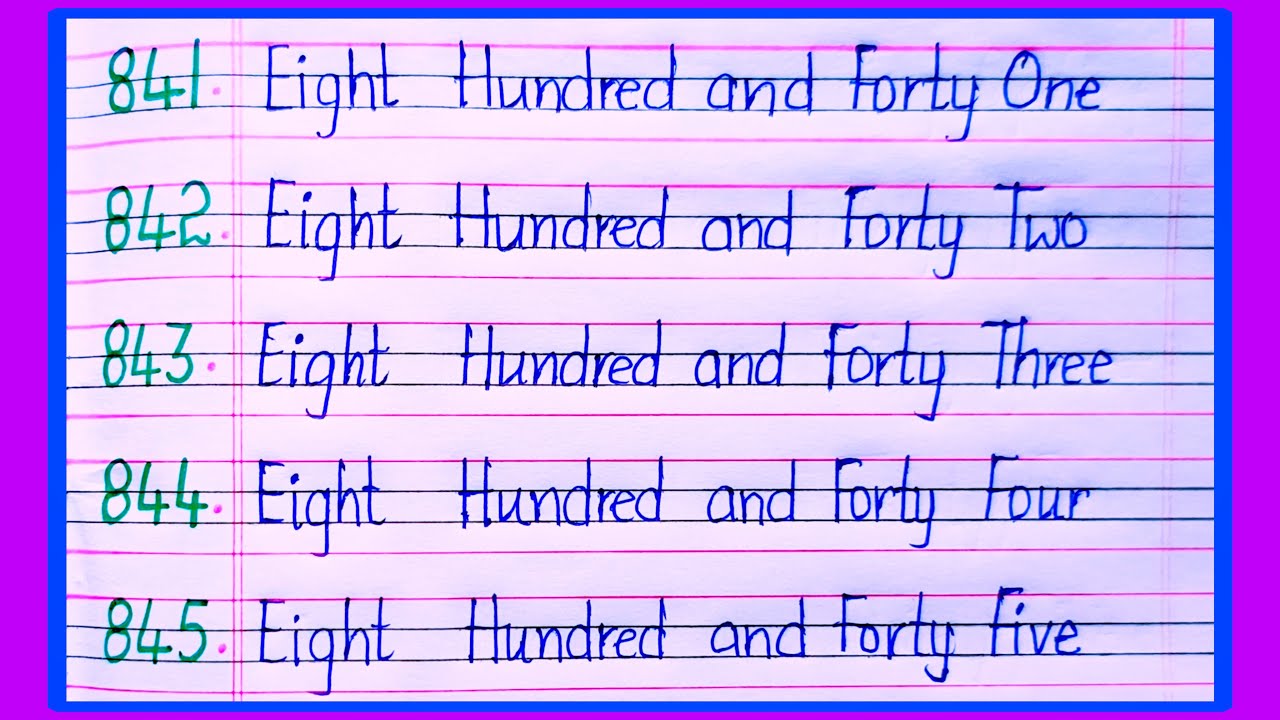 841. Eight Hundred and Forty One
842. Eight Hundred and Forty Two
843. Eight Hundred and Forty Three
844. Eight Hundred and Forty Four
845. Eight Hundred and Forty Five